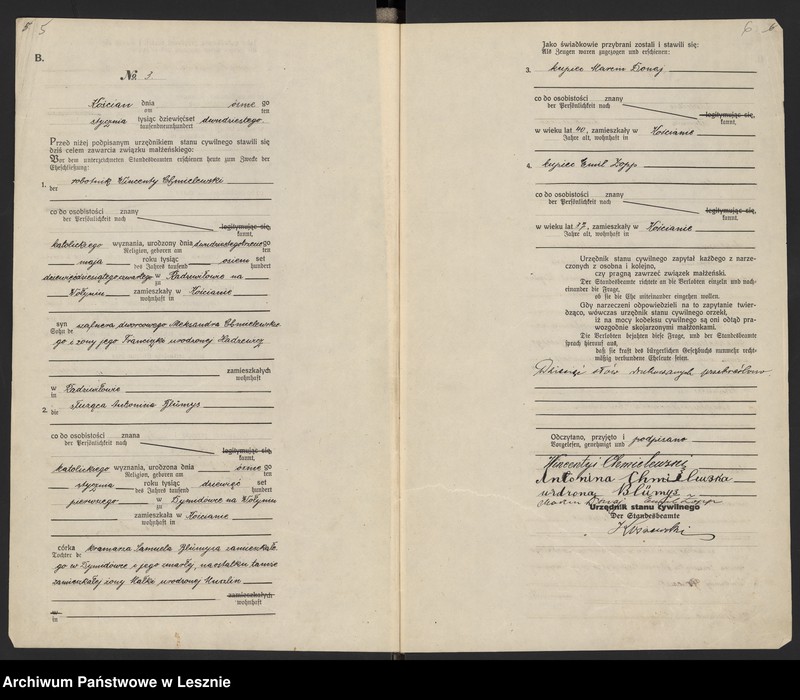 5 5
B.
No. 3
Kościan dnia ósmego
am ten
stycznia tysiąc dziewięćset dwudziestego
tausendneunhundert
Przed niżej podpisanym urzędnikiem stanu cywilnego stawili się
dziś celem zawarcia związku małżeńskiego:
Vor dem unterzeichneten Standesbeamten erschienen heute zum Zwecke der
Eheschließung:
1. robotnik Wincenty Chmielewski
der
co do osobistości znany
der Persönlichkeit nach
legitymując się,
kannt,
katolickiego wyznania, urodzony dnia
Religion, geboren am ten
maja roku tysiąc osiem set
des Jahres tausend hundert
dziewięćdziesiątego czwartego w Radziwiłowie na
zu
Wołyniu zamieszkały w Kościanie
wohnhaft in
syn dworcowego Aleksandra Chmielewskie-
Sohn de
go i żony jego Franciszki urodzonej
zamieszkałych
wohnhaft
w Radziwiłowie
in
2. służąca Antonina Blümys
die
co do osobistości znana
der Persönlichkeit nach
legitymując się,
kannt,
katolickiego wyznania, urodzona dnia ósmego
Religion, geboren am ten
stycznia roku tysiąc dziewięć set
des Jahres tausend hundert
pierwszego w na Wołyniu
zu
zamieszkała w Kościanie
wohnhaft in
córka kramarza Samuela Blümysa zamieszkałe-
Tochter de
go w i jego zmarłej, na ostatku tamże
zamieszkałej żony Malke urodzonej
zamieszkałych
wohnhaft
w
in
6 6
Jako świadkowie przybrani zostali i stawili się:
Als Zeugen waren zugezogen und erschienen:
3. kupiec Marcin
co do osobistości znany
der Persönlichkeit nach
legitymując się,
kannt,
w wieku lat 40, zamieszkały w Kościanie
Jahre alt, wohnhaft in
4. kupiec Emil Zopp
co do osobistości znany
der Persönlichkeit nach
legitymując się,
kannt,
w wieku lat zamieszkały w Kościanie
Jahre alt, wohnhaft in
Urzędnik stanu cywilnego zapytał każdego z narze-
czonych z osobna i kolejno,
czy pragną zawrzeć związek małżeński.
Der Standesbeamte richtete an die Verlobten einzeln und nach-
einander die Frage,
ob sie die Ehe miteinander eingehen wollen.
Gdy narzeczeni odpowiedzieli na to zapytanie twier-
dząco, wówczas urzędnik stanu cywilnego orzekł,
iż na mocy kodeksu cywilnego są oni odtąd pra-
wozgodnie skojarzonymi małżonkami.
Die Verlobten bejahten diese Frage, und der Standesbeamte
sprach hierauf aus,
daß sie kraft des bürgerlichen Gesetzbuchs nunmehr recht-
mäßig verbundene Eheleute seien.
Dziesięć słów drukowanych przekreślono
Odczytano, przyjęto i podpisano
Vorgelesen, genehmigt und
Wincentyi Chmielewski
Antonina Chmielewska
urdzonaj Blümys
Marcin Emil Zopp
Urzędnik stanu cywilnego
Der Standesbeamte
Archiwum Państwowe w Lesznie